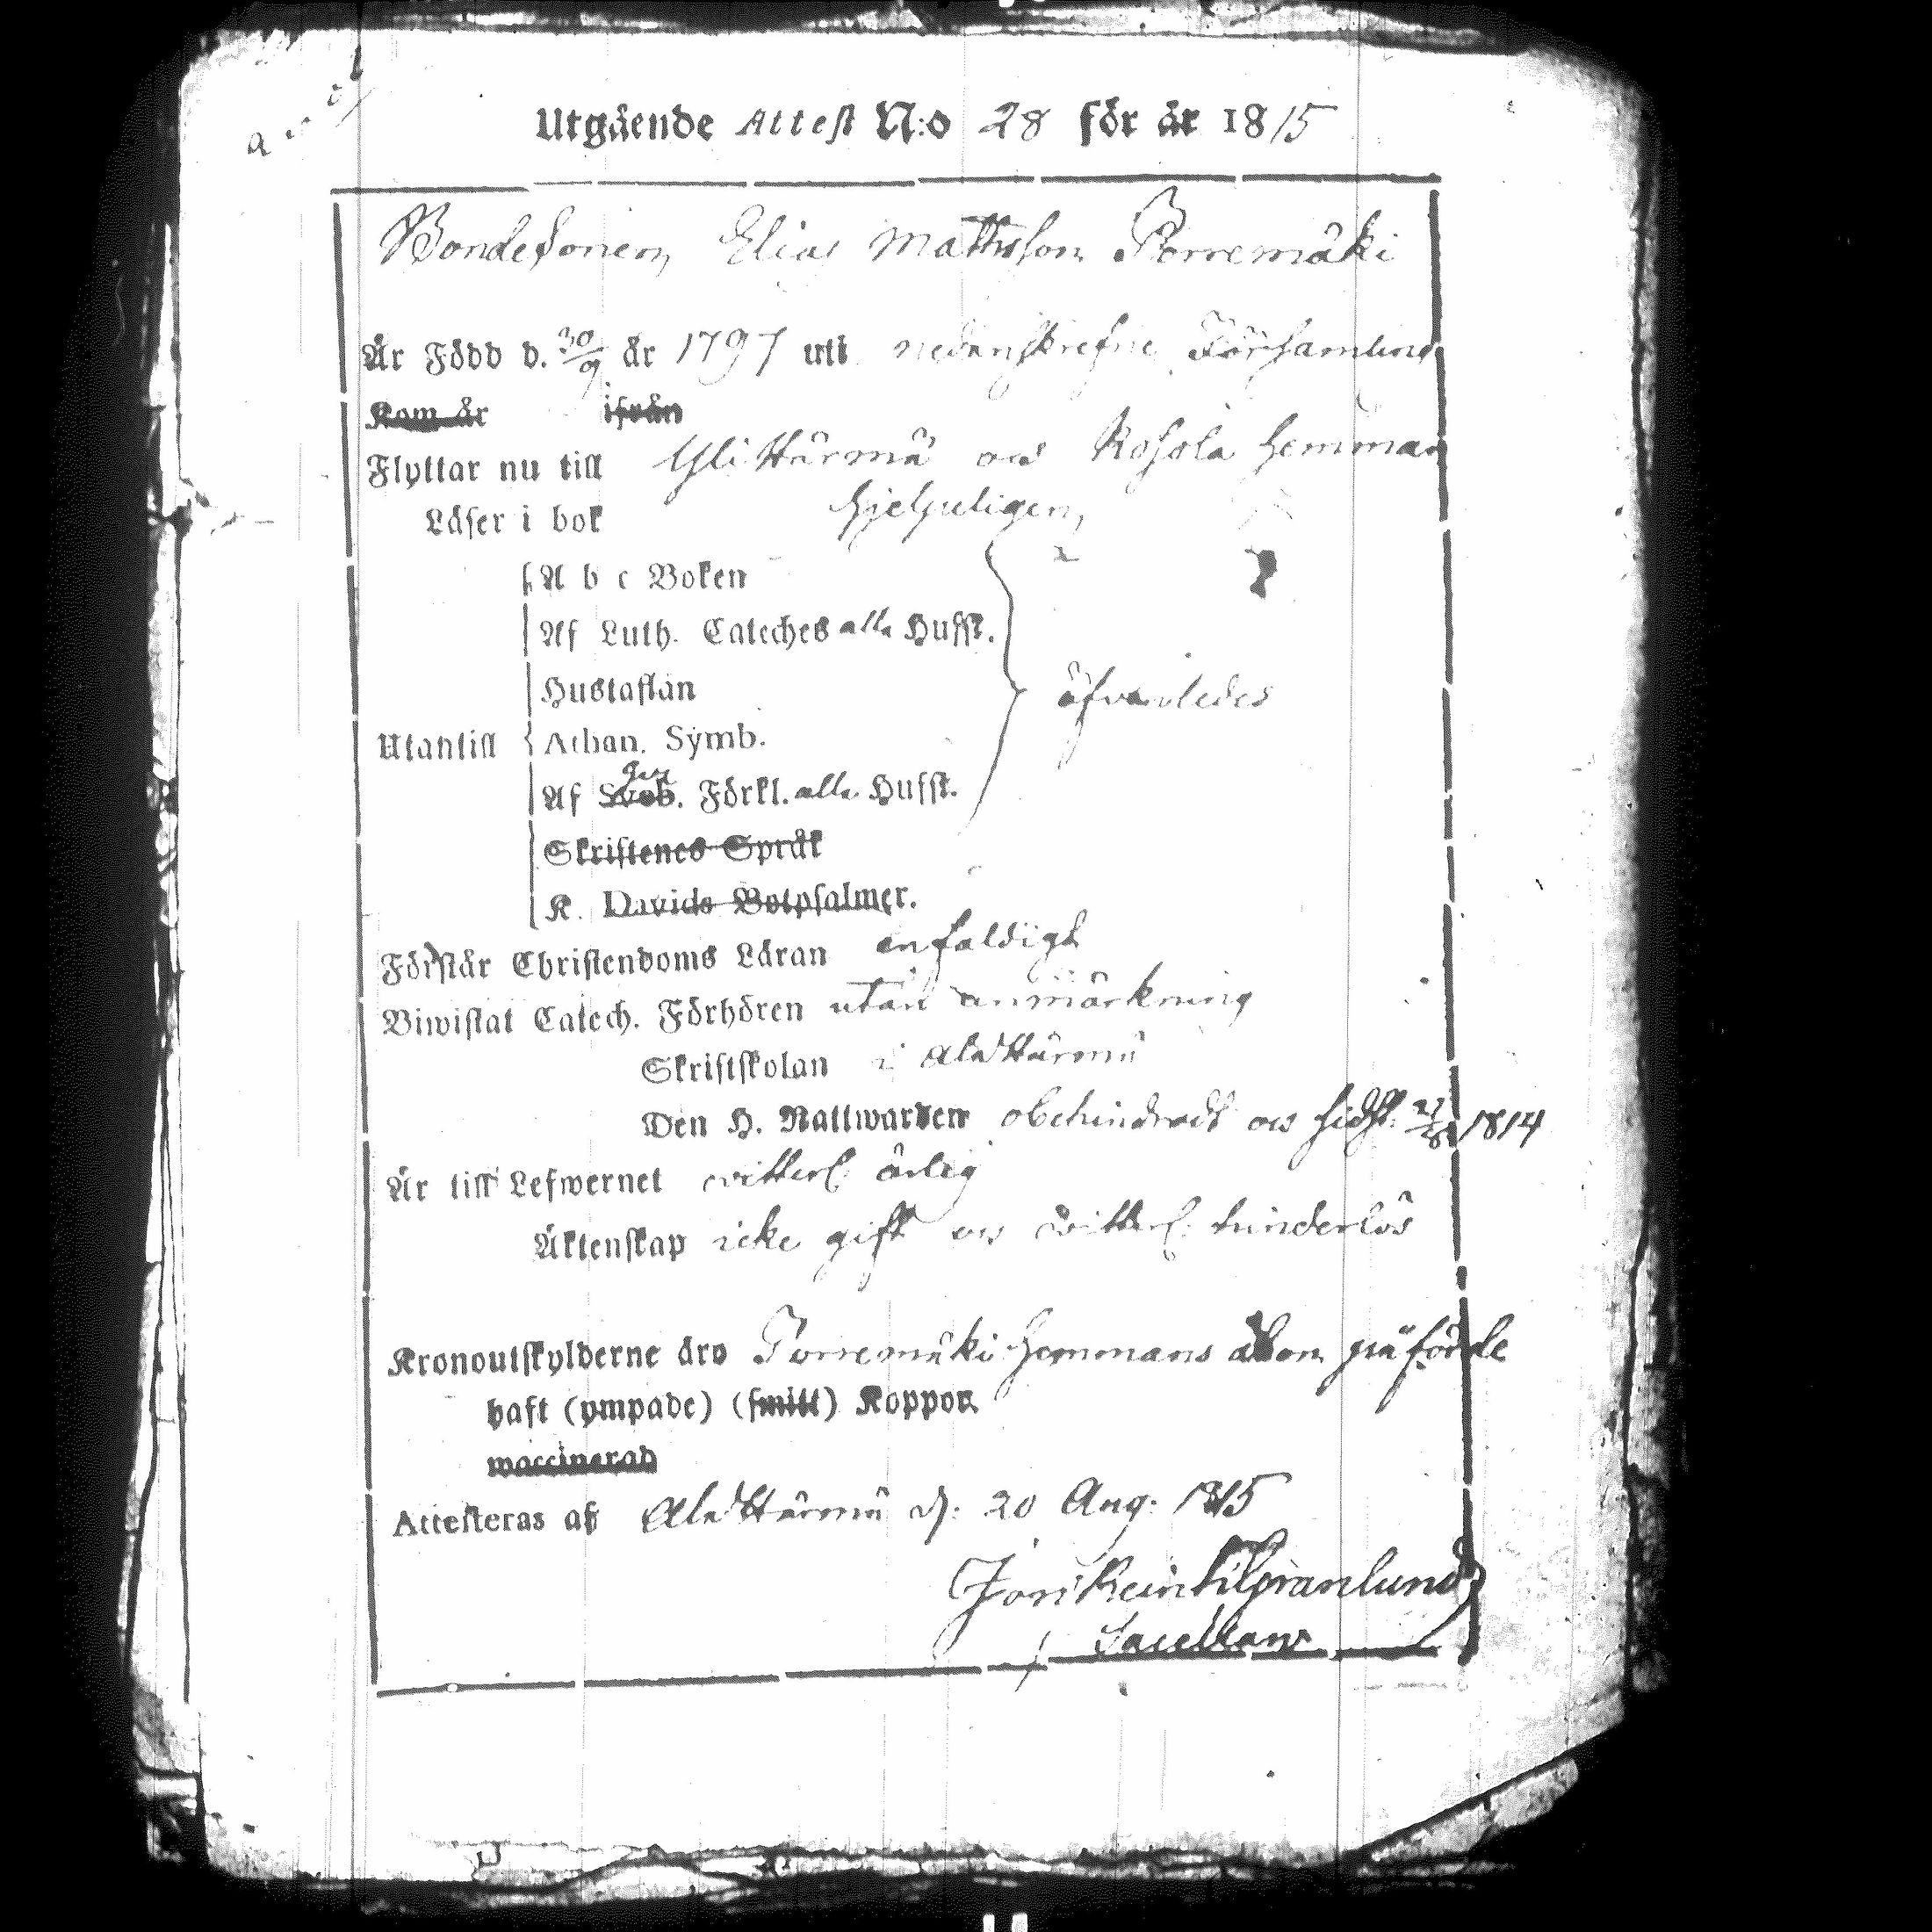 Utgående Attest N:o 28 för år 1815
Bondesonen Elias Mattsson Porremäki
Är Född d. 30/9 år 1797 uti nedanskrefne Församling
Kom år ifrån
Flyttar nu till Yli Härmä och Kosola Hemman
Läser i bok hjelpeligen
A b c Boken
Af Luth. Cateches alla Hufst.
Hustaflan äfvenledes
Utantill Athan. Symb.
Af Sveb. Förkl. alla Hufst.
Skriftenes Språk
K. Davids Botpsalmer.
Förstår Christendoms Läran enfaldigt
Biwistat Catech. Förhören utan anmärkning
Skriftskolan i Ala Härmä
Den H. Nattwarden obehindradt och sidst. 1814
Är till Lefwernet witterl. ärlig
Äktenskap icke gift och witterl. hinderlös
Kronoutskylderne äro Porremäki Hemmans åbon påförde
haft (ympade) (smitt) Koppor.
waccinerad
Attesteras af Ala Härmä d. 20 Aug. 1815
Granlund
Sacellan